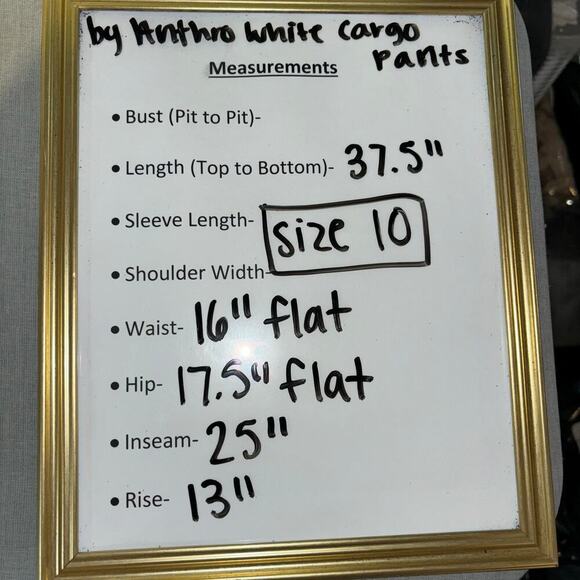 by Anthro White Cargo
pants
Measurements
• Bust (Pit to Pit)-
• Length (Top to Bottom)- 37.5"
• Sleeve Length-
size 10
• Shoulder Width-
• Waist- 16" flat
• Hip- 17.5" flat
• Inseam- 25"
• Rise- 13"